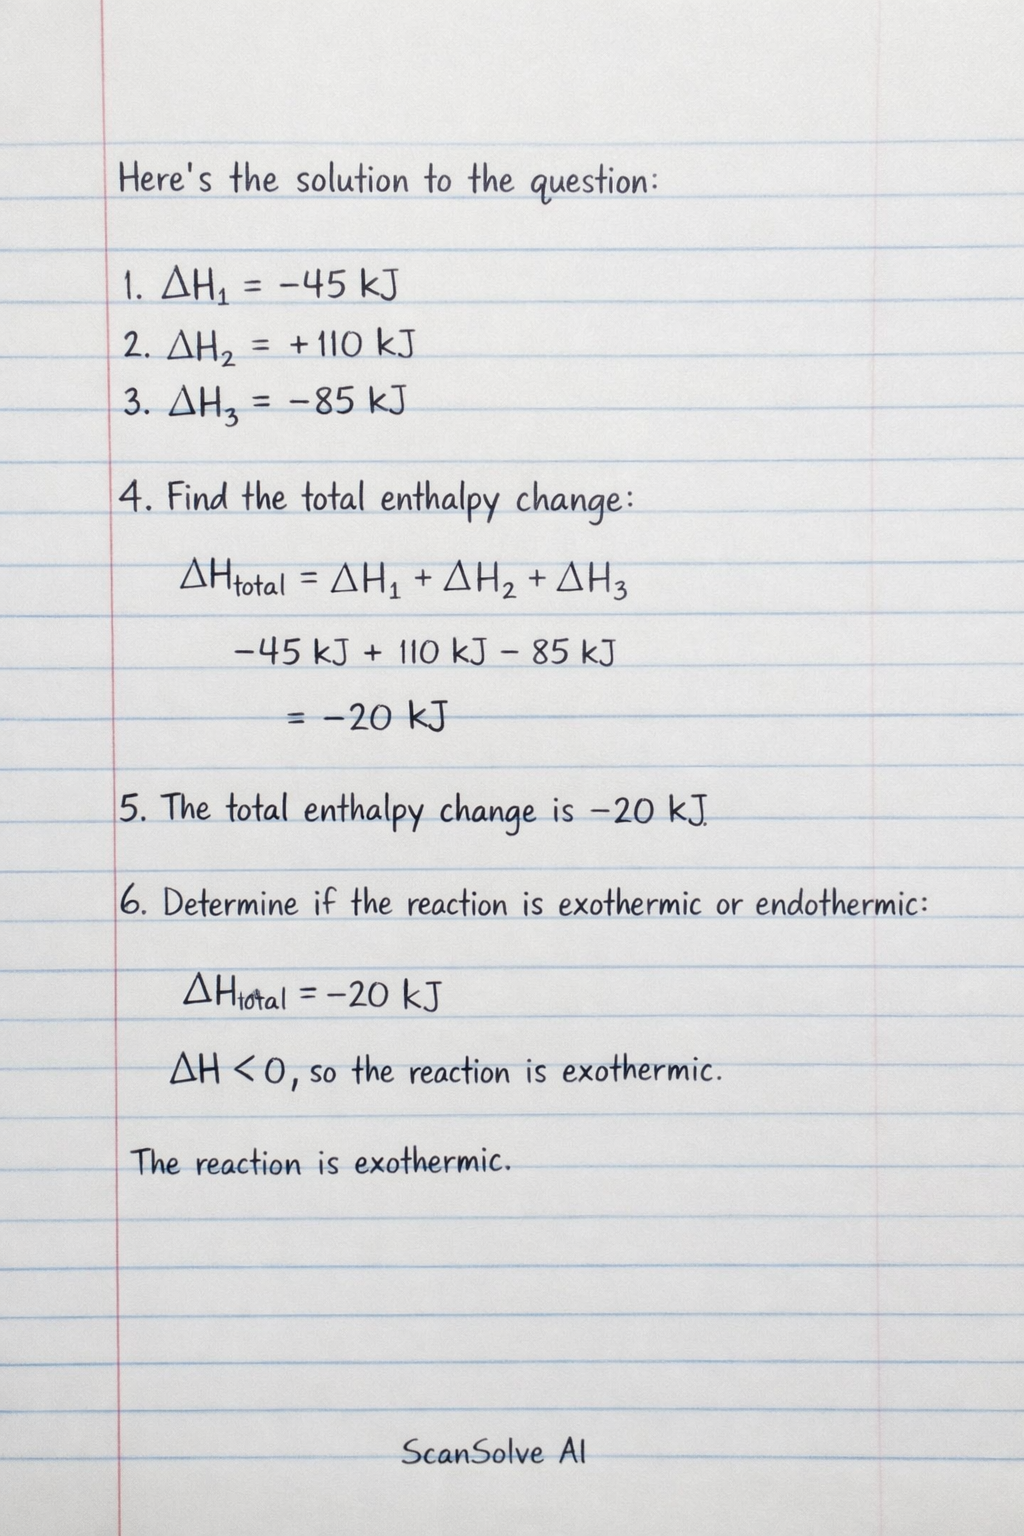 Here's the solution to the question:
1. ΔH₁ = −45 kJ
2. ΔH₂ = +110 kJ
3. ΔH₃ = −85 kJ
4. Find the total enthalpy change:
ΔHtotal = ΔH₁ + ΔH₂ + ΔH₃
−45 kJ + 110 kJ − 85 kJ
= −20 kJ
5. The total enthalpy change is −20 kJ.
6. Determine if the reaction is exothermic or endothermic:
ΔHtotal = −20 kJ
ΔH < 0, so the reaction is exothermic.
The reaction is exothermic.
ScanSolve AI